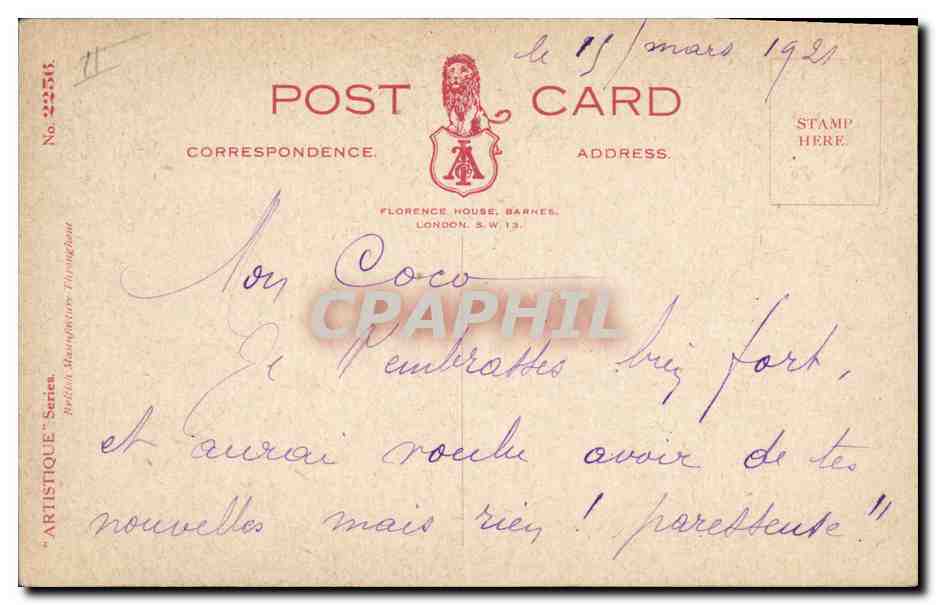 le 15 mars 1921
II
No. 2256.
POST CARD
CORRESPONDENCE.
ADDRESS.
STAMP
HERE.
FLORENCE HOUSE, BARNES,
LONDON. S.W. 13.
"ARTISTIQUE" Series.
British Manufacture Throughout
Mon Coco
CPAPHIL
Je t'embrasses bien fort,
et aurai voulu avoir de tes
nouvelles mais rien ! paresseuse"